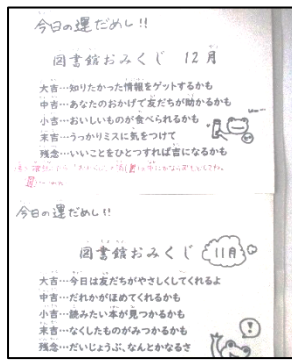 今日の運だめし!!
図書館おみくじ 12月
大吉…知りたかった情報をゲットするかも
中吉…あなたのおかげで友だちが助かるかも
小吉…おいしいものが食べられるかも
末吉…うっかりミスに気をつけて
残念…いいことをひとつすれば吉になるかも
今日の運だめし!!
図書館おみくじ 11月
大吉…今日は友だちがやさしくしてくれるよ
中吉…だれかがほめてくれるかも
小吉…読みたい本が見つかるかも
末吉…なくしたものがみつかるかも
残念…だいじょうぶ、なんとかなるさ